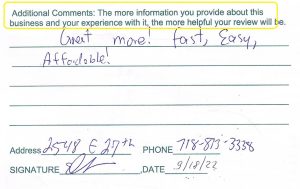 Additional Comments: The more information you provide about this
business and your experience with it, the more helpful your review will be.
Great move! fast, Easy,
Affordable!
Address 2548 E 27th PHONE 718-813-3338
SIGNATURE DATE 9/18/22